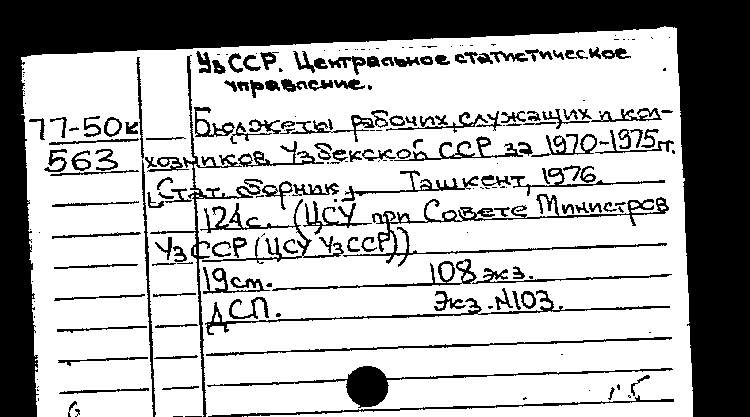 УзССР. Центральное статистическое
управление.
77-50к Бюджеты рабочих, служащих и кол-
563 хозников Узбекской ССР за 1970-1975гг.
[Стат. сборник]. Ташкент, 1976.
124с. (ЦСУ при Совете Министров
УзССР (ЦСУ УзССР)).
19см. 108 экз.
ДСП. Экз. N103.